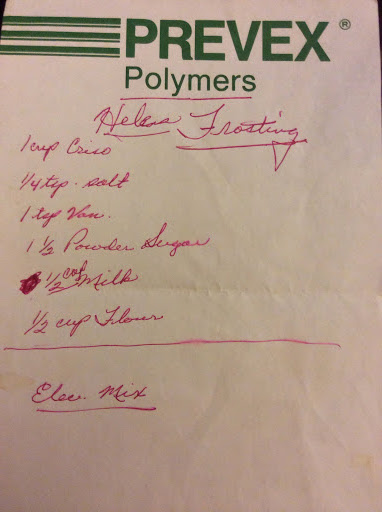 PREVEX ®
Polymers
Helens Frosting
1 cup Crisco
1/4 tsp. salt
1 tsp Van.
1 1/2 Powder Sugar
1/2 cup Milk
1/2 cup Flour
Elec. Mix